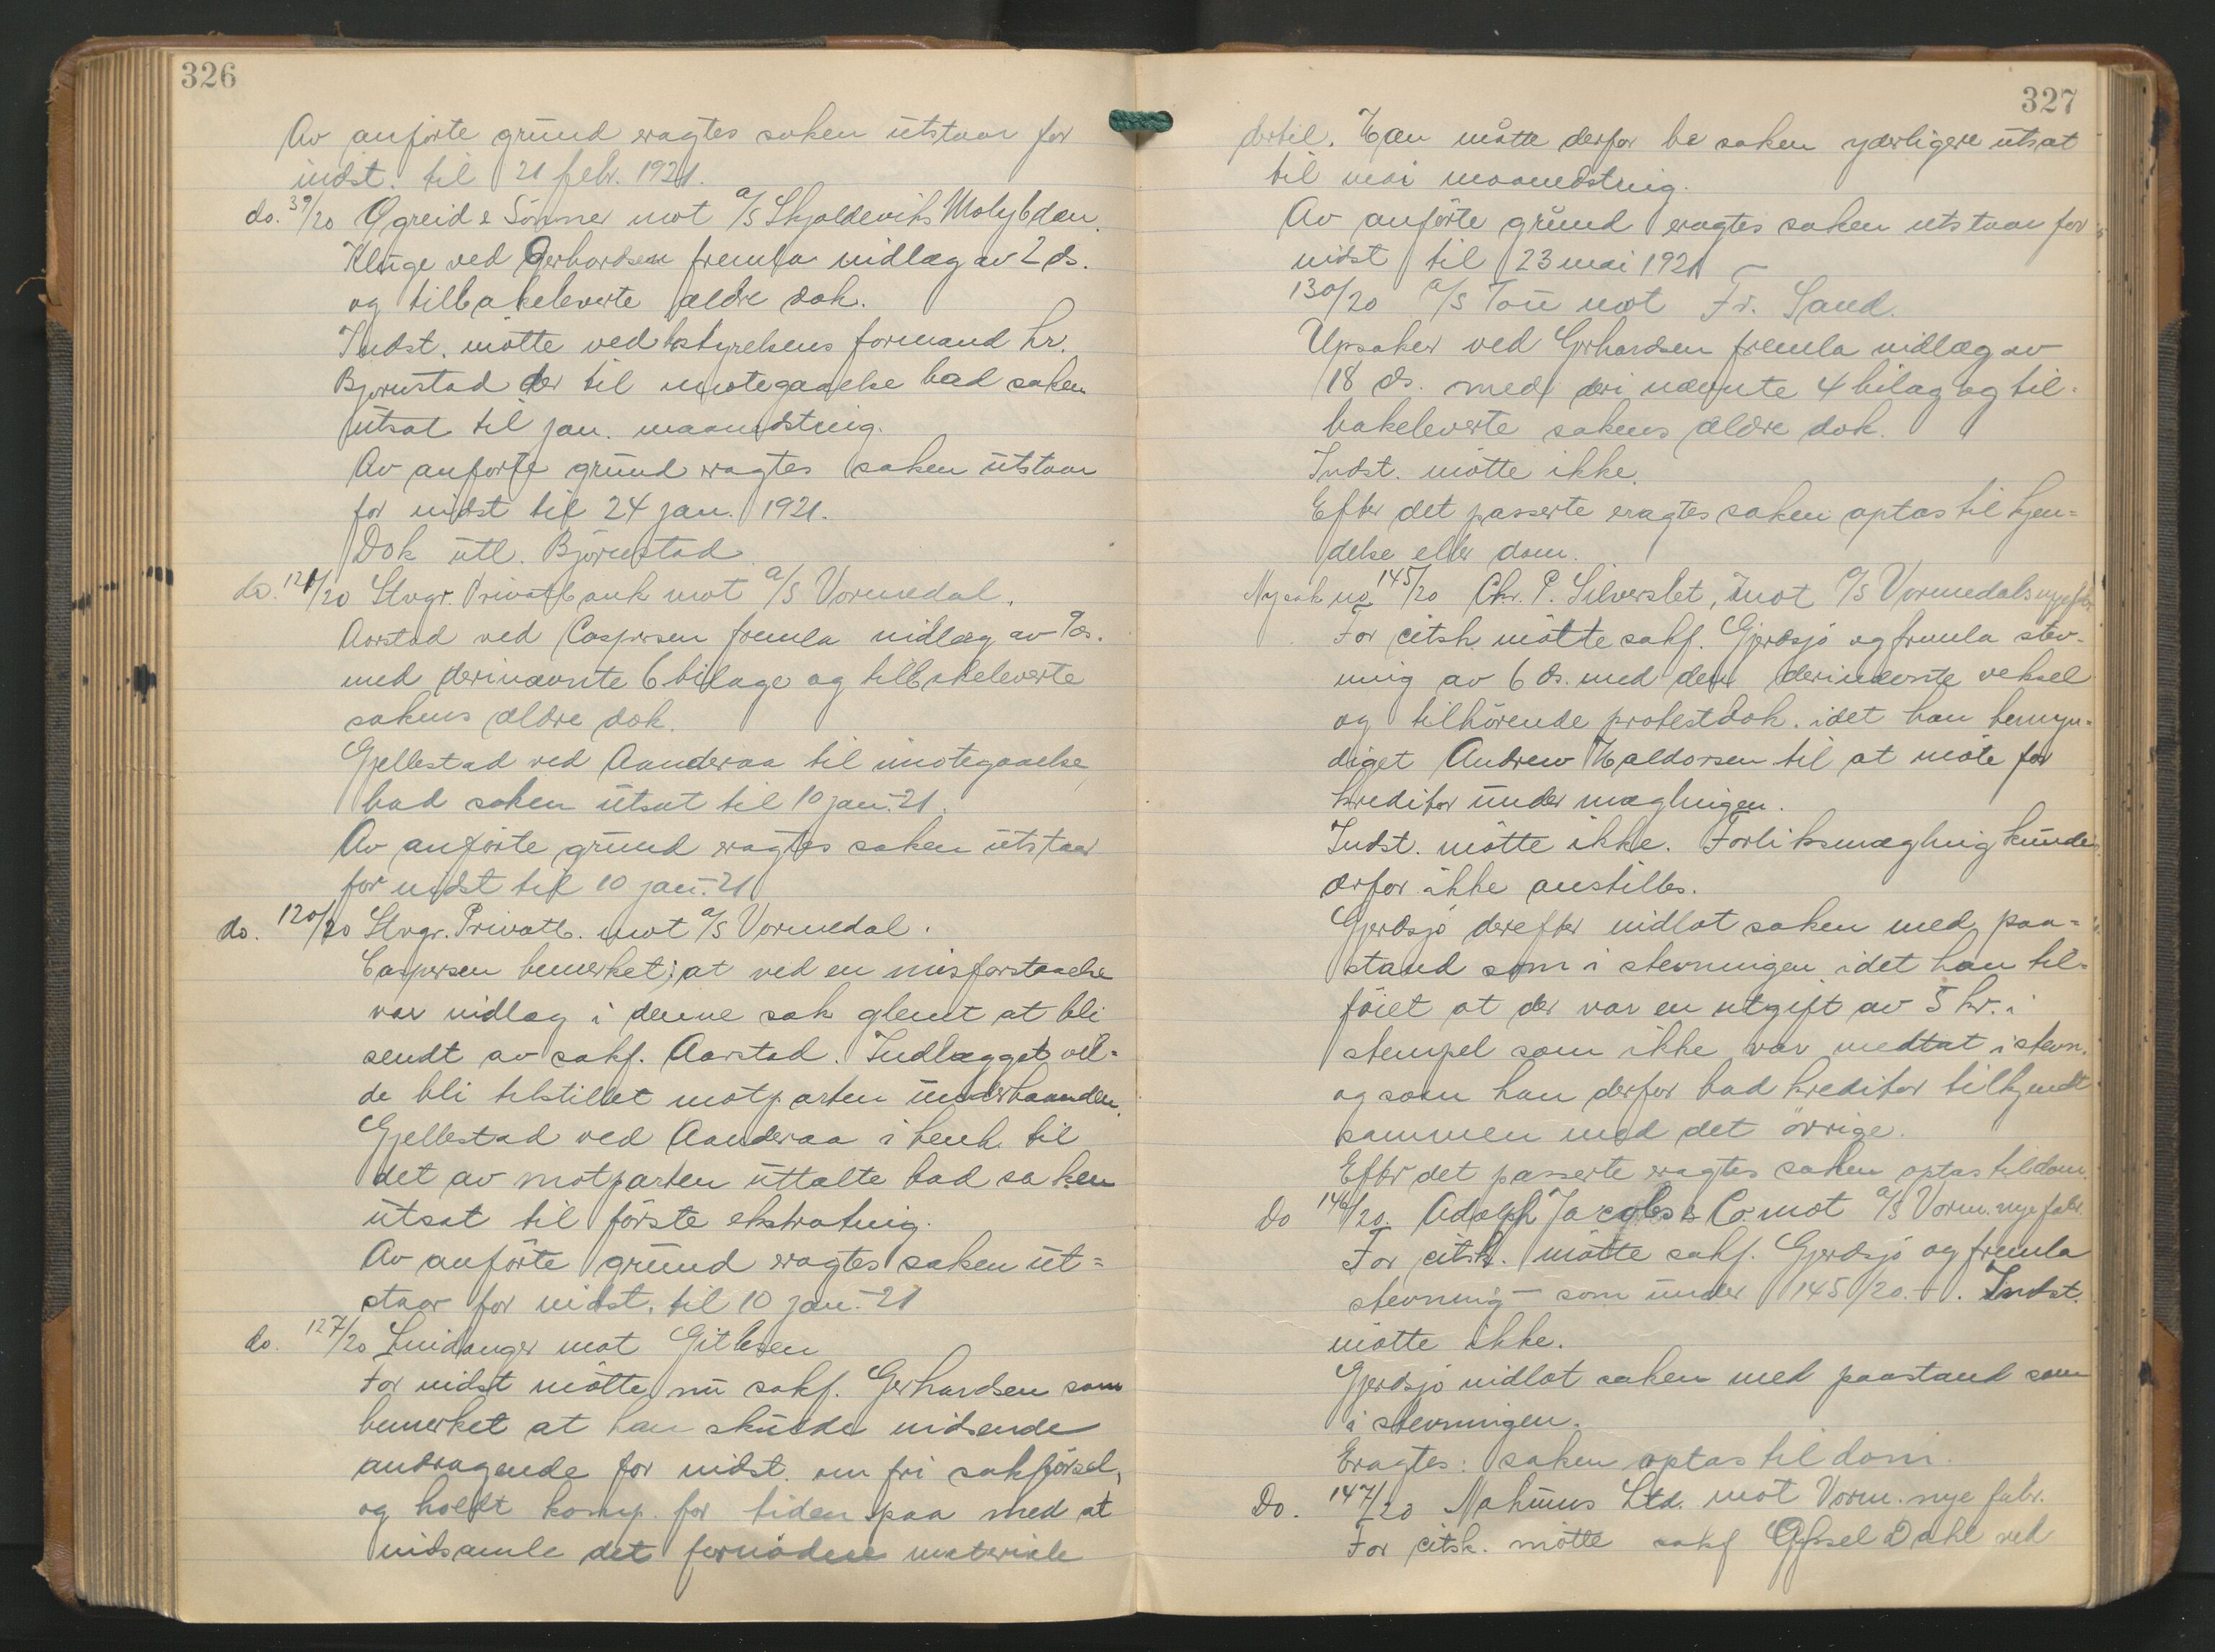 326
Av anførte grund eragtes saken utstaar for
indst. til 21 febr. 1921.
do. 39/20 Ogreid & Sönner mot A/S Skjoldeviks Molybdæn.
Kluge ved Gerhardsen fremla indlæg av 2 ds.
og tilbakeleverte ældre dok.
Indst. mötte ved bestyrelsens formand hr.
Bjørnstad der til imotegaaelse bad saken
utsat til jan. maanedsting.
Av anførte grund eragtes saken utstaar
for indst til 24 jan. 1921.
Dok utl. Björnstad
do. 121/20 Stvgr. Privatbank mot A/S Vormedal.
Aarstad ved Caspersen fremla indlæg av 9 ds.
med derinævnte 6 bilage og tilbakeleverte
sakens ældre dok.
Gjellestad ved Aanderaa til imotegaaelse
bad saken utsat til 10 jan.-21.
Av anførte grund eragtes saken utstaar
for indst til 10 jan.-21
do. 120/20 Stvgr. Privatb. mot A/S Vormedal.
Caspersen bemerket, at ved en misforstaaelse
var indlæg i denne sak glemt at bli
sendt av sakf. Aarstad. Indlægget vil-
de bli tilstillet motparten underhaanden.
Gjellestad ved Aanderaa i henh. til
det av motparten uttalte bad saken
utsat til förste ekstrating.
Av anförte grund eragtes saken ut=
staar for indst. til 10 jan.-21
do. 127/20 Lindanger mot Gitlesen
For indst mötte nu sakf. Gerhardsen som
bemerket at han skulde indsende
andragende for indst. om fri sakförsel,
og holdt komp. for tiden paa med at
indsamle det fornødne materiale
327
dertil. Han måtte derfor be saken yderligere utsat
til mai maanedsting.
Av anförte grund eragtes saken utstaar for
indst til 23 mai 1921 -
130/20 A/S Tou mot Fr. Sand.
Upsaker ved Gerhardsen fremla indlæg av
18 ds. med deri nævnte 4 bilag og til-
bakeleverte sakens ældre dok.
Indst. mötte ikke.
Efter det passerte eragtes saken optas til kjen=
delse eller dom.
Ny sak no 145/20 Chr. P. Silverslet, mot A/S Vormedals nye fbr.
For citsk mötte sakf. Gjerdsjö og fremla stev-
ning av 6 ds. med den derinævnte veksel
og tilhörende protestdok. idet han bemyn-
diget Andrew Haldorsen til at møte for
kreditor under mæglingen.
Indst. mötte ikke. Forliksmægling kunde
derfor ikke anstilles.
Gjerdsjö derefter indlot saken med paa=
stand som i stevningen idet han til-
föiet at der var en utgift av 5 kr. i
stempel som ikke var medtat i stevn.
og som han derfor bad kreditor tilkjendt
sammen med det övrige.
Efter det passerte eragtes saken optas til dom.
Do 146/20. Adolph Jacobs & Co. mot A/S Vorm. nye fabr.
For citsk. mötte sakf. Gjerdsjö og fremla
stevning - som under 145/20. -. Indst.
mötte ikke.
Gjerdsjö indlot saken med paastand som
i stevningen.
Eragtes: saken optas til dom.
Do. 147/20 Mahinus Ltd. mot Vorm. nye fabr.
For citsk. mötte sakf Dahl ved